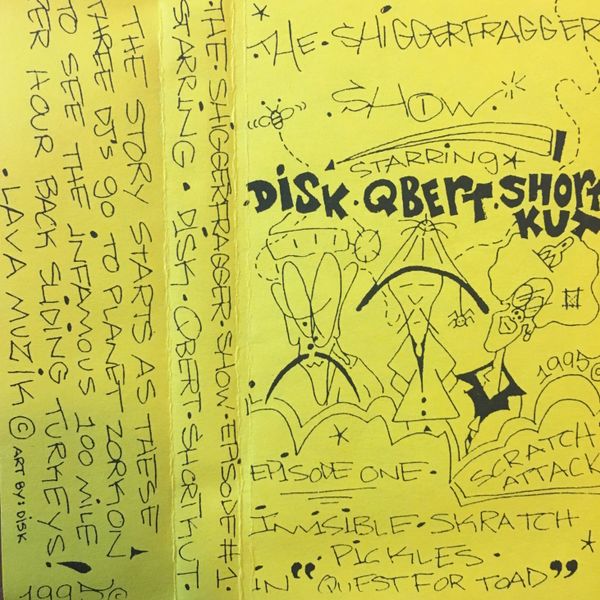 THE SHIGGERFRAGGER
SHOW.
STARRING
DISK·QBERT·SHORT
KUT
1995©
SCRATCH
ATTACK
EPISODE ONE·
INVISIBLE·SKRATCH
PICKLES·
IN "QUEST FOR TOAD"
·THE·SHIGGERFRAGGER·SHOW·EPISODE #1·
STARRING·DISK·QBERT·SHORTKUT·
THE STORY STARTS AS THESE
THREE DJ's go TO PLANET ZORKON
TO SEE THE INFAMOUS 100 MILE
PER HOUR BACK SLIDING TURKEYS!
·LAVA MUZIK © ART BY: DISK
1995©